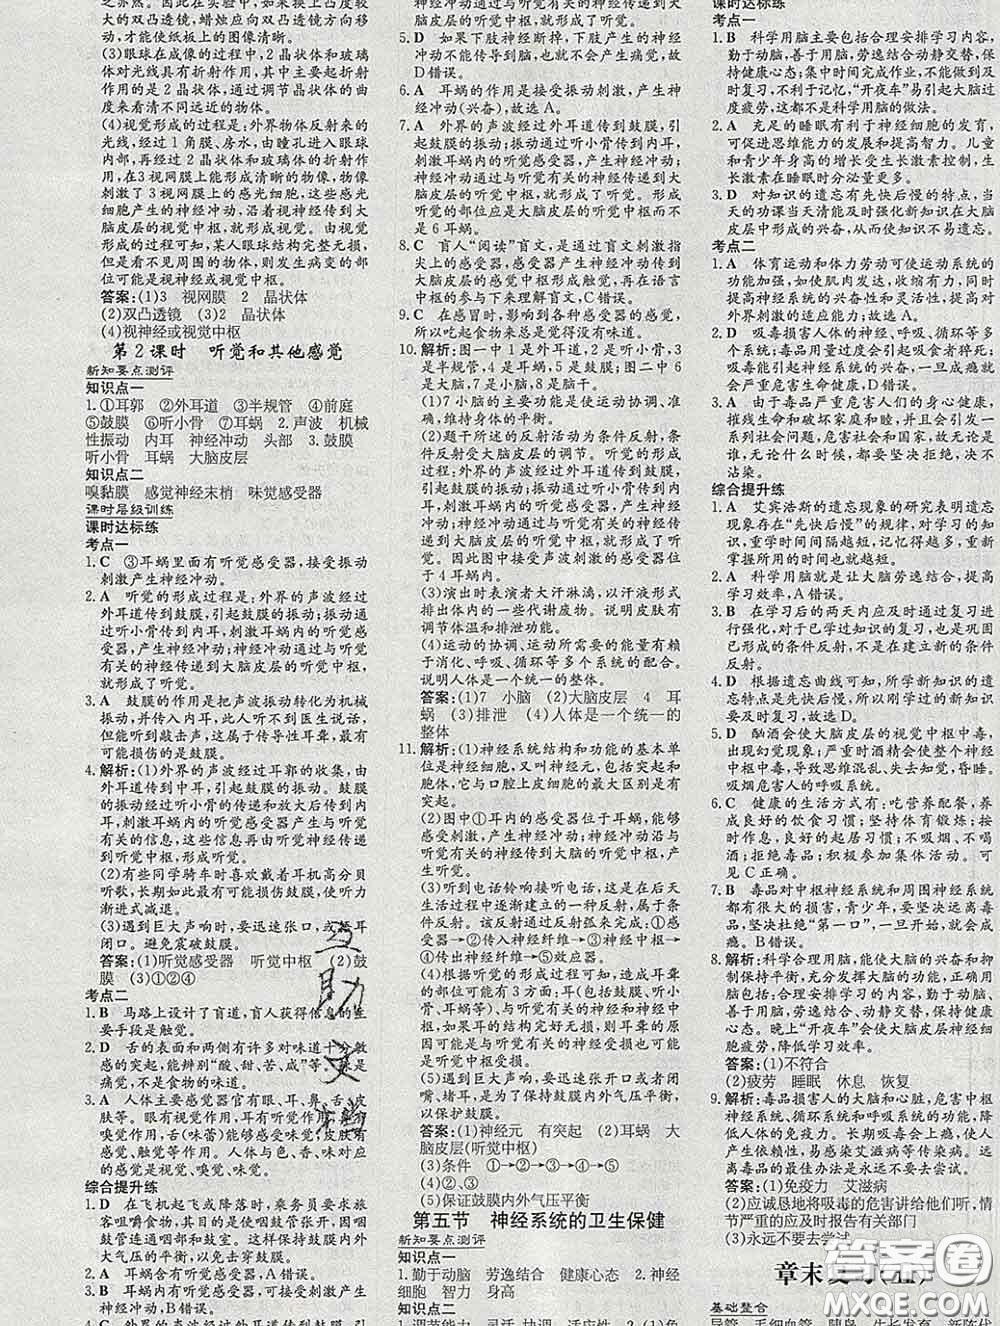 之亦然。因此在实验中,如果换上凸度较大
的双凸透镜,蜡烛应向双凸透镜方向移动,
才能使纸板上的图像清晰。
(3)眼球在成像的过程中2晶状体和玻璃
体对光线具有折射作用,其中主要起折射
作用的是2晶状体,通过调节晶状体的曲
度来看清不同远近的物体。
(4)视觉形成的过程是:外界物体反射来的
光线,经过1角膜、房水,由瞳孔进入眼球
内部,再经过2晶状体和玻璃体的折射作
用,在视网膜上能形成清晰的物像,物像
刺激了3视网膜上的感光细胞,这些感光
细胞产生的神经冲动,沿着视神经传到大
脑皮层的视觉中枢,就形成视觉。由视觉
形成的过程可知,某人眼球结构完整无损,
但是看不见周围的物体,则发生病变的部
位可能是视神经或视觉中枢。
答案:(1)3 视网膜 2 晶状体
(2)双凸透镜 (3)2 晶状体
(4)视神经或视觉中枢
第2课时 听觉和其他感觉
新知要点测评
知识点一
1.①耳郭 ②外耳道 ③半规管 ④前庭
⑤鼓膜 ⑥听小骨 ⑦耳蜗 2.声波 机械
性振动 内耳 神经冲动 头部 3.鼓膜
听小骨 耳蜗 大脑皮层
知识点二
嗅黏膜 感觉神经末梢 味觉感受器
课时层级训练
课时达标练
考点一
1.C ③耳蜗里面有听觉感受器,接受振动
刺激产生神经冲动。
2.A 听觉的形成过程是:外界的声波经过
外耳道传到鼓膜,引起鼓膜的振动;振动通
过听小骨传到内耳,刺激耳蜗内的听觉感
受器,产生神经冲动;神经冲动通过与听觉
有关的神经传递到大脑皮层的听觉中枢,
就形成了听觉。
3.A 鼓膜的作用是把声波振动转化为机械
振动,并传入内耳,此人听不到医生说话,
但能听到敲击声,这是属于传导性耳聋,最
有可能损伤的是鼓膜。
4.解析:(1)外界的声波经过耳郭的收集,由
外耳道传到中耳,引起鼓膜的振动,这种振
动经过听小骨的传递和放大后传到内耳,
刺激了耳蜗内的听觉感受器,产生与声波
有关的信息,这些信息再由听神经传递到
听觉中枢,形成听觉。
(2)有些同学骑车时喜欢戴着耳机高分贝
听歌,长期如此最有可能损伤鼓膜,使听力
渐进式减退。
(3)遇到巨大声响时,要迅速张口,或捂耳
闭口。避免震破鼓膜。
答案:(1)听觉感受器 听觉中枢 (2)鼓
膜 (3)①②④
考点二
1.B 马路上设计了盲道,盲人获得信息的主
要手段是触觉。
2.D 舌的表面和两侧有许多对味道十分敏
感的突起,能辨别“酸、甜、苦、咸”等,辣是
痛觉,不是食物的味道。
3.A 人体主要感受器官有眼、耳、鼻、舌、皮
肤等。眼有视觉作用,耳有听觉作用,鼻有
嗅觉作用,舌(味蕾)能够感受味觉,皮肤有
感受冷、热、触、痛等作用。人体与色、香、味对应
的感觉分别是视觉、嗅觉、味觉。
综合提升练
1.D 在飞机起飞或降落时,乘务员要求旅
客咀嚼食物,其目的是使咽鼓管张开,咽鼓
管连通咽喉部和鼓室。这样保持鼓膜内外
大气压力的平衡,以免鼓膜受损。
2.A 耳蜗含有听觉感受器,A错误。
3.C 大脑皮层的听觉中枢是形成听觉的部
位。耳蜗内有对声波敏感的感觉细胞,属
于听觉感受器,这些细胞将声波信息通过
听神经传到大脑皮层的听觉中枢,形成听觉。
5.D 如果下肢神经断掉,下肢产生的神经冲
动不能传到大脑,也就不会产生痛觉,故
D错误。
6.A 耳蜗的作用是接受振动刺激,产生神
经冲动(兴奋),故选A。
7.A 外界的声波经过外耳道传到鼓膜,引
起鼓膜的振动;振动通过听小骨传到内耳,
刺激耳蜗内的听觉感受器,产生神经冲动;
神经冲动通过与听觉有关的神经传递到大
脑皮层的听觉中枢,就形成了听觉。形成
听觉的部位应是7大脑皮层的听觉而不
是6耳蜗。
8.C 盲人“阅读”盲文,由盲文刺激指
尖上的感受器,感受器产生的兴奋传到大
脑皮层的躯体感觉中枢形成触觉,再在语言
中枢的参与下来理解盲文。
9.C 在感冒时,影响到各种感受器的感受,
所以吃起食物来总是觉得没有味道。
10.解析:图一中1是外耳道,2是听小骨,3
是半规管,4是耳蜗,5是鼓膜;图二中6
是大脑,7是小脑,8是脑干。
(1)7小脑的主要功能是使运动协调、准
确,维持身体的平衡。
(2)题干所述的反射活动为条件反射,条
件反射受大脑皮层的调节。听觉的形成
过程:外界的声波经过外耳道传到鼓膜,
引起鼓膜的振动;振动通过听小骨传到内
耳,刺激耳蜗内的听觉感受器,产生神经
冲动;神经冲动通过与听觉有关的神经传
递到大脑皮层的听觉中枢,就形成了听
觉。因此图中接受声波刺激的感受器位
于4耳蜗内。
(3)演出时表演者大汗淋漓,以汗液形式
排出体内的一些代谢废物。说明皮肤有
调节体温和排泄功能。
(4)运动的协调、运动所需要的能量有赖
于消化、呼吸、循环等多个系统的配合。
说明人体是一个统一的整体。
答案:(1)7 小脑 (2)大脑皮层 4 耳
蜗 (3)排泄 (4)人体是一个统一的
整体
11.解析:(1)神经系统结构和功能的基本单
位是神经细胞,又叫神经元,包括细胞体和突起,
它与口腔上皮细胞的最大区别是有
突起。
(2)图中①耳内的感受器位于耳蜗,能够感
受刺激,产生神经冲动。神经冲动沿与
听觉有关的神经传到大脑的听觉中枢,产
生听觉。
(3)听到电话铃响接听电话,这是在后天
生活中逐渐建立的一种反射,属于条件反
射。该反射途径为:①感
受器→②传入神经纤维→③神经中枢→
④传出神经纤维→⑤效应器。
(4)根据听觉的形成过程可知,造成耳聋
的部位可能有3方面:耳(包括鼓膜、听小
骨、耳蜗等)、与听觉有关的神经、听觉中
枢,如果耳的结构完好无损,则有可能是
与听觉有关的神经或听觉中枢受损。
(5)遇到巨大声响时,要迅速张开口或闭
嘴、堵耳,以使鼓膜内外大气压力平衡,
以保护鼓膜。
答案:(1)神经元 有突起 (2)耳蜗 大
脑皮层(听觉中枢)
(3)条件 ①→②→③→④→⑤
(4)②、③
(5)保证鼓膜内外气压平衡
第五节 神经系统的卫生保健
新知要点测评
知识点一
1.勤于动脑 劳逸结合 健康心态 2.神经
细胞 智力 身高
知识点二
课时达标练
考点一
1.B 科学用脑主要包括合理安排学习内容,
勤于动脑,合理安排,劳逸结合动静交替,保
持健康心态;集中时间完成作业,不能及时复
习,不利于记忆,“开夜车”易引起大脑过
度疲劳,这都不是科学用脑的做法。
2.A 充足的睡眠有利于神经细胞的发育,
可促进思维能力的发展和提高智力。儿童
和青少年身高的增长受生长激素控制,生长激
素在睡眠时分泌量更多。
3.D 对知识的遗忘有先快后慢的特点,当
天的功课当天清能及时强化新知识在大脑
皮层中形成的兴奋,从而避免遗忘。
考点二
1.A 体育运动和体力劳动可使运动系统的
功能加强,如使肌肉发达,收缩有力,同时
提高神经系统的兴奋性和灵活性,提高对
外界刺激的适应能力,故选A。
2.D 吸毒损害人体的神经、呼吸、循环等多个
系统;毒品用量过度会引起吸食者猝死;
吸毒者一旦上瘾,难以戒掉,吸毒严重危
害生命健康,D错误。
3.A 由于毒品严重危害人们的身心健康,
摧残生命和破坏家庭和睦,并且会引发一
系列社会问题,危害社会和国家,故无论是
什么人,无论什么时候,都要坚决不
沾染。
综合提升练
1.A 艾宾浩斯的遗忘现象的研究表明遗忘
现象存在“先快后慢”的规律,对学习的知
识,重学时间间隔越短,记忆得越多,重新
掌握所用的时间也就越短。
2.A 科学用脑就是让大脑劳逸结合,提高
学习效率,A错误。
3.B 在学习后的两天内应及时通过复习进
行强化,对于已学过知识的复习,也是巩固
已形成的条件反射,不属于建立新的条件
反射。
4.D 根据遗忘曲线可知,所学新知识的遗
忘特点是先快后慢,所以刚学过的新知识
要尽早复习,故选D。
5.D 酗酒会使大脑皮层的视觉中枢中毒,
出现幻觉现象;严重时酒精会使大脑中毒,
导致思维混乱、失去知觉、昏睡。
吸烟危害人体的呼吸系统。
6.C 健康的生活方式有:吃营养配餐,养
成良好的饮食习惯;坚持体育锻炼;按
时作息,良好的起居习惯;不吸烟、不喝
酒;拒绝毒品;积极参加集体活动。可
见C正确。
7.B 毒品对中枢神经系统和周围神经系统
都有很大的损害,青少年,要为自己的健康
着想,坚决杜绝“第一口”,一旦开始,就会成
瘾。B错误。
8.解析:科学合理用脑,能使大脑的兴奋和抑
制保持平衡,有利于提高大脑的功能,正确用
脑的措施有:合理安排学习内容,勤于动脑,
善于动脑、劳逸结合、动静交替,保持健康
心态。晚上“开夜车”会使大脑皮层神经细
胞疲劳,降低学习效率。
答案:(1)不符合
(2)疲劳 睡眠 休息 恢复
9.解析:吸毒会损害人的大脑和心脏,危害循
环系统和呼吸系统的功能,使人精神萎靡,降
低人体的免疫力。长期吸毒会使人上瘾,产生依赖
性,共用注射器还易感染艾滋病等传染病。远
离毒品的最好办法是永远不要去尝试。
答案:(1)免疫力 艾滋病
(2)应诚恳地将吸毒的危害讲给他们听,情
节严重的应及时报告有关部门
(3)永远不要去尝试
章末复习(五)
基础整合
互助文档
答案圈
MXQE.COM